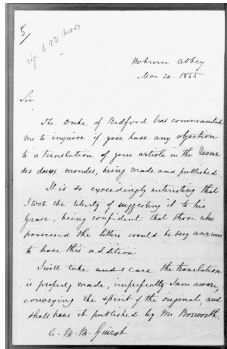 5
Woburn Abbey
Nov 20. 1855
Sir
The Duke of Bedford has commanded
me to inquire if you have any objection
to a translation of your article in the Revue
des deux mondes, being made and published
It is so exceedingly interesting that
I took the liberty of suggesting it to his
Grace, being confident that those who
possessed the letters would be very anxious
to have this addition
I will take care the translation
is properly made, imperfectly I am aware,
conveying the spirit of the original, and
shall have it published by Mr Bosworth,
A. M. M. Guizot